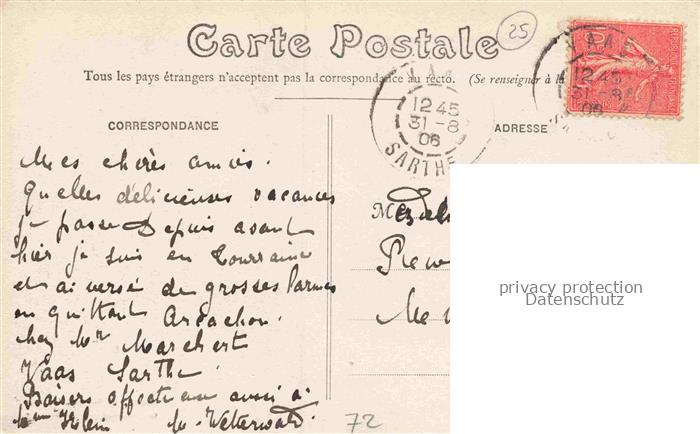 25
Carte Postale
Tous les pays étrangers n'acceptent pas la correspondance au recto. (Se renseigner à la
VAAS
12 45
31-8
06
SARTHE
VAAS
12 45
31-8
06
CORRESPONDANCE
ADRESSE
Mes chères amies.
Quelles délicieuses vacances
je passe Depuis avant
hier je suis en Tourraine
et ai versé de grosses larmes
en quittant Arcachon.
chez Mr Marchert
Vaas Sarthe.
Baisers affectueux aussi à
M
Me
privacy protection
Datenschutz
72